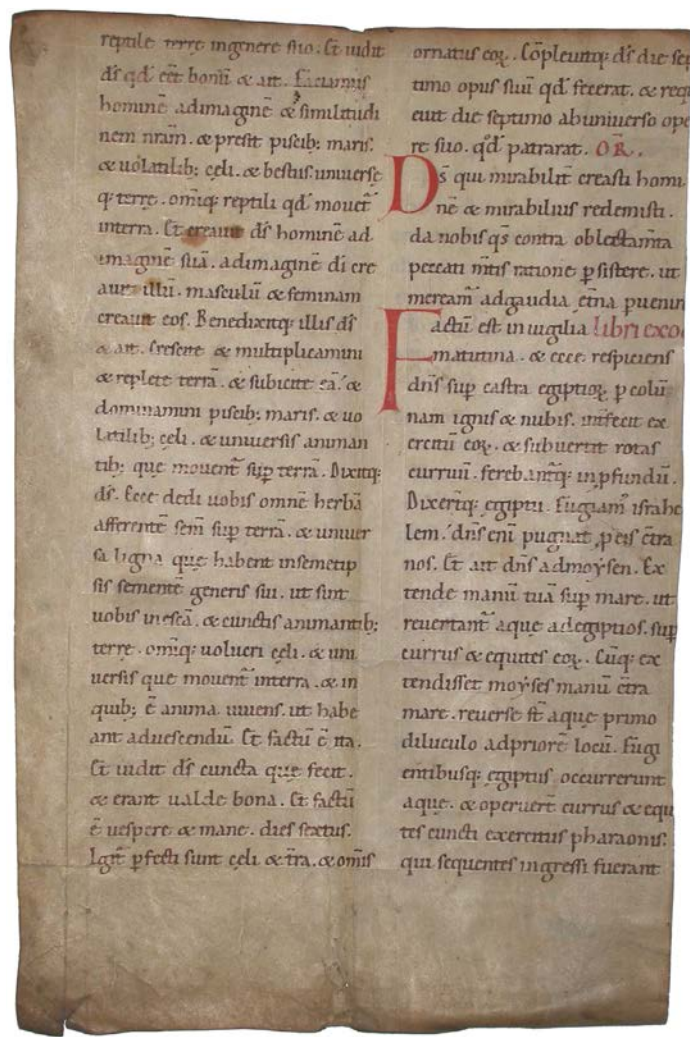 reptile terrę in genere suo. Et uidit
ds̄ qd̄ eēt bonū & ait. Faciamus
hominē ad imaginē & similitudi
nem nr̄am. & presit piscib; maris.
& uolatilib; cęli. & bestiis uniuerse
q; terrę. omiq; reptili qd̄ mouet̄
in terra. Et creauit ds̄ hominē ad
imaginē suā. ad imaginē di cre
auit illū. masculū & feminam
creauit eos. Benedixitq; illis ds̄
& ait. Crescite & multiplicamini
& replete terrā. & subicite eā. &
dominamini piscib; maris. & uo
latilib; cęli. & uniuersis animan
tib; que mouent̄ sup̄ terrā. Dixitq;
ds̄. Ecce dedi uobis omnē herbā
afferentē sem̄ sup̄ terrā. & uniuer
sa ligna que habent in semetip
sis sementē generis sui. ut sint
uobis in escā. & cunctis animantib;
terrę. omiq; uolucri cęli. & uni
uersis que mouent̄ in terra. & in
quib; ē anima uiuens. ut habe
ant aduescendū. Et factū ē ita.
Et uidit ds̄ cuncta que fecit.
& erant ualde bona. Et factū
ē uespere & mane. dies sextus.
Igit̄ pfecti sunt cęli & tr̄a. & omīs
ornatus eoꝝ. Cōpleuitq; ds̄ die sep
timo opus suū qd̄ fecerat. & req
euit die septimo ab uniuerso ope
re suo. qd̄ patrarat. OR̄.
Ds̄ qui mirabilit̄ creasti homi
nē & mirabilius redemisti.
da nobis qs̄ contra oblectam̄ta
peccati m̄tis ratione ꝑsistere. ut
meream̄ ad gaudia et̄na ꝑuenir
Factū est in uigilia libri exo
matutina. & ecce respiciens
dn̄s sup̄ castra egiptioꝝ ꝑ colū
nam ignis & nubis. int̄fecit ex
ercitū eoꝝ. & subuertit rotas
curruū. ferebant̄q; in ꝓfundū.
Dixer̄tq; egiptii. Fugiam̄ israhe
lem. dn̄s eni pugnat ꝓ eis c̄tra
nos. Et ait dn̄s ad moẏsen. Ex
tende manū tuā sup̄ mare. ut
reuertant̄ aque ad egiptios. sup̄
currus & equites eoꝝ. Cūq; ex
tendisset moẏses manū c̄tra
mare. reuerse st̄ aque primo
diluculo ad priorē locū. Fugi
entibusq; egiptiis occurrerunt
aque. & operuer̄t currus & equi
tes cuncti exercitus pharaonis.
qui sequentes ingressi fuerant